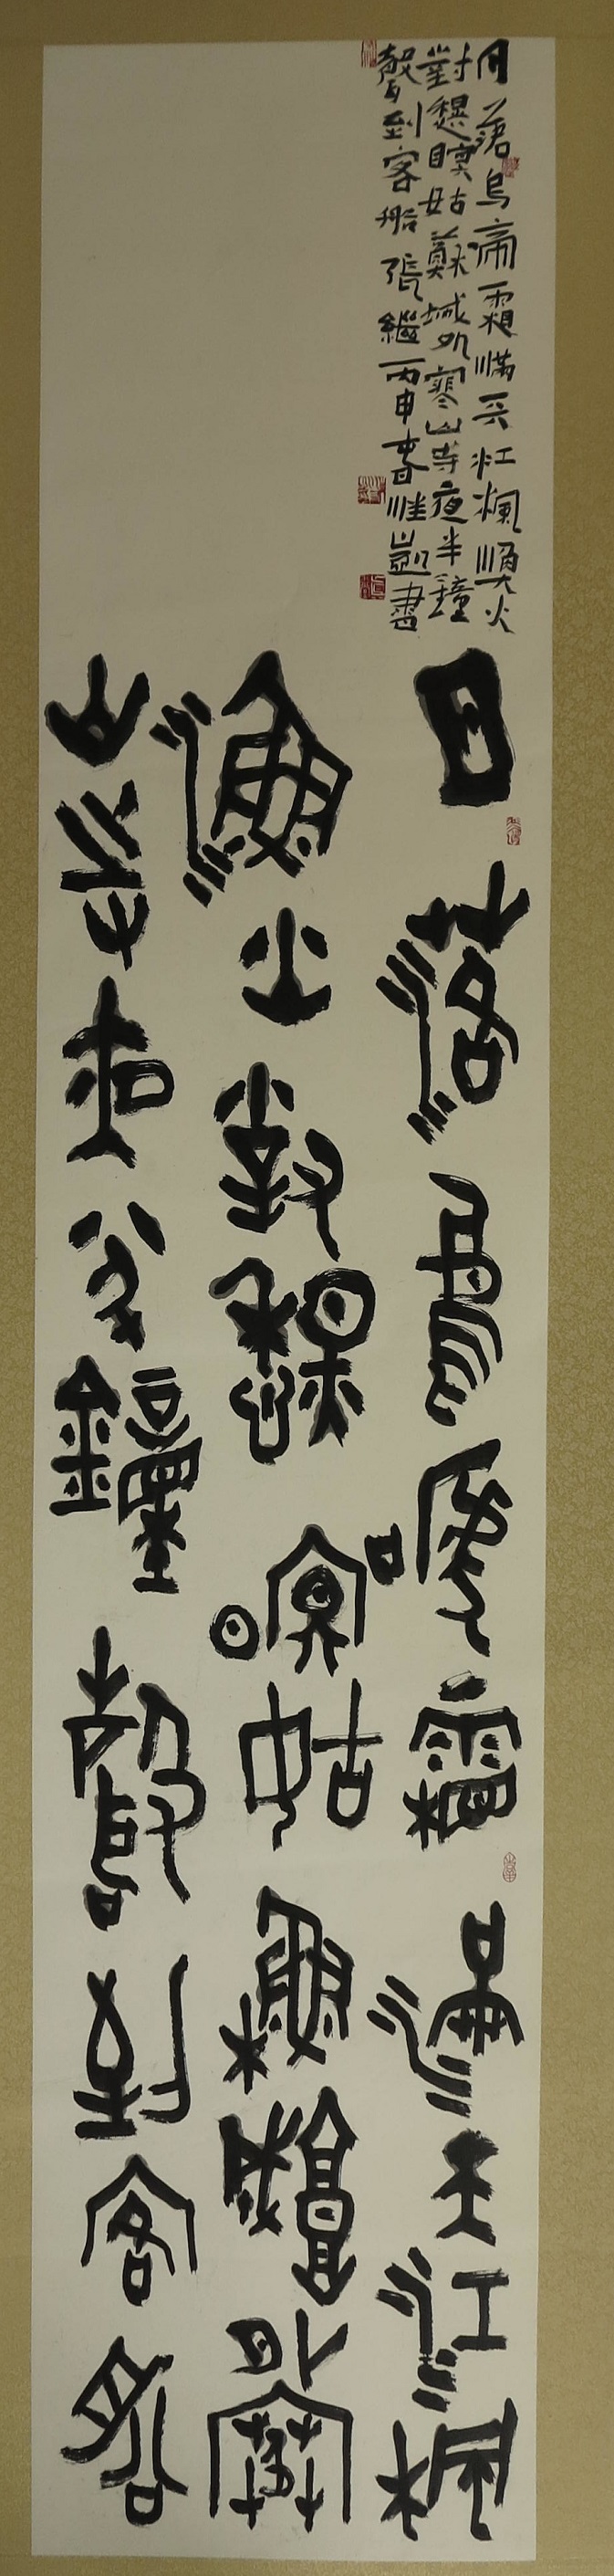 月落烏啼霜滿天江楓漁火
對愁瞑姑蘇城外寒山寺夜半鐘
聲到客船張繼丙申春惟凱書
月落烏啼霜滿天江楓
漁火對愁瞑姑蘇城外寒
山寺夜半鐘聲到客船